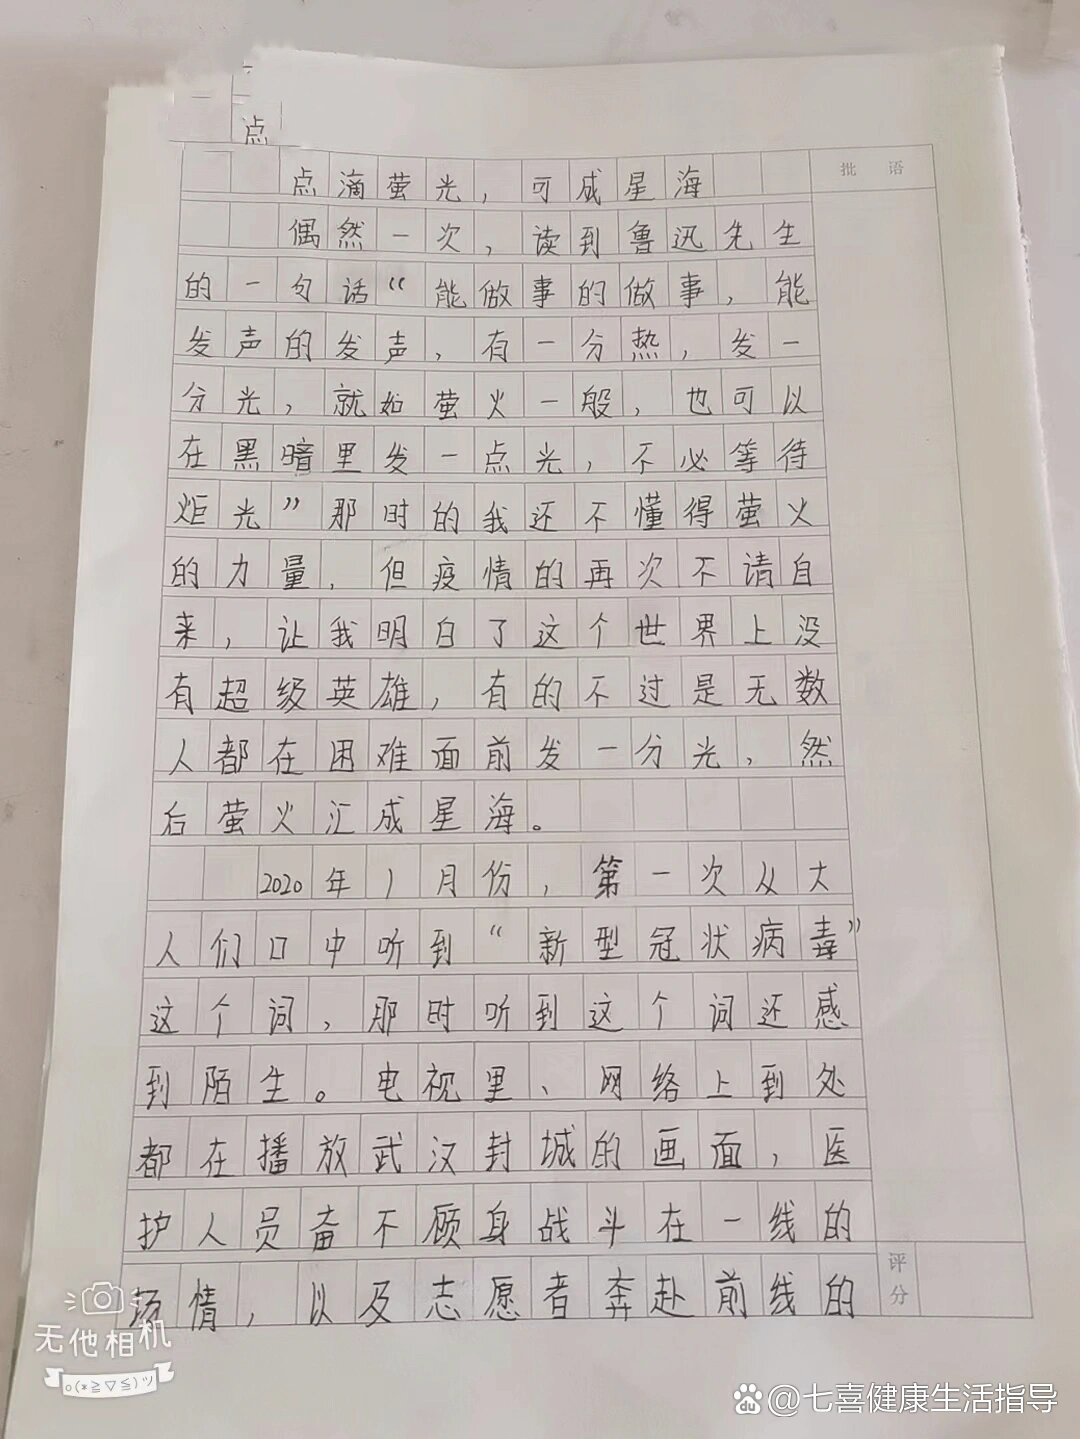 点
批 语
点滴萤光，可成星海
偶然一次，读到鲁迅先生
的一句话“能做事的做事，能
发声的发声，有一分热，发一
分光，就如萤火一般，也可以
在黑暗里发一点光，不必等待
炬光”那时的我还不懂得萤火
的力量，但疫情的再次不请自
来，让我明白了这个世界上没
有超级英雄，有的不过是无数
人都在困难面前发一分光，然
后萤火汇成星海。
2020年1月份，第一次从大
人们口中听到“新型冠状病毒”
这个词，那时听到这个词还感
到陌生。电视里、网络上到处
都在播放武汉封城的画面，医
护人员奋不顾身战斗在一线的
场情，以及志愿者奔赴前线的
评分
无他相机
o(*≧▽≦)ツ
Bai du @七喜健康生活指导